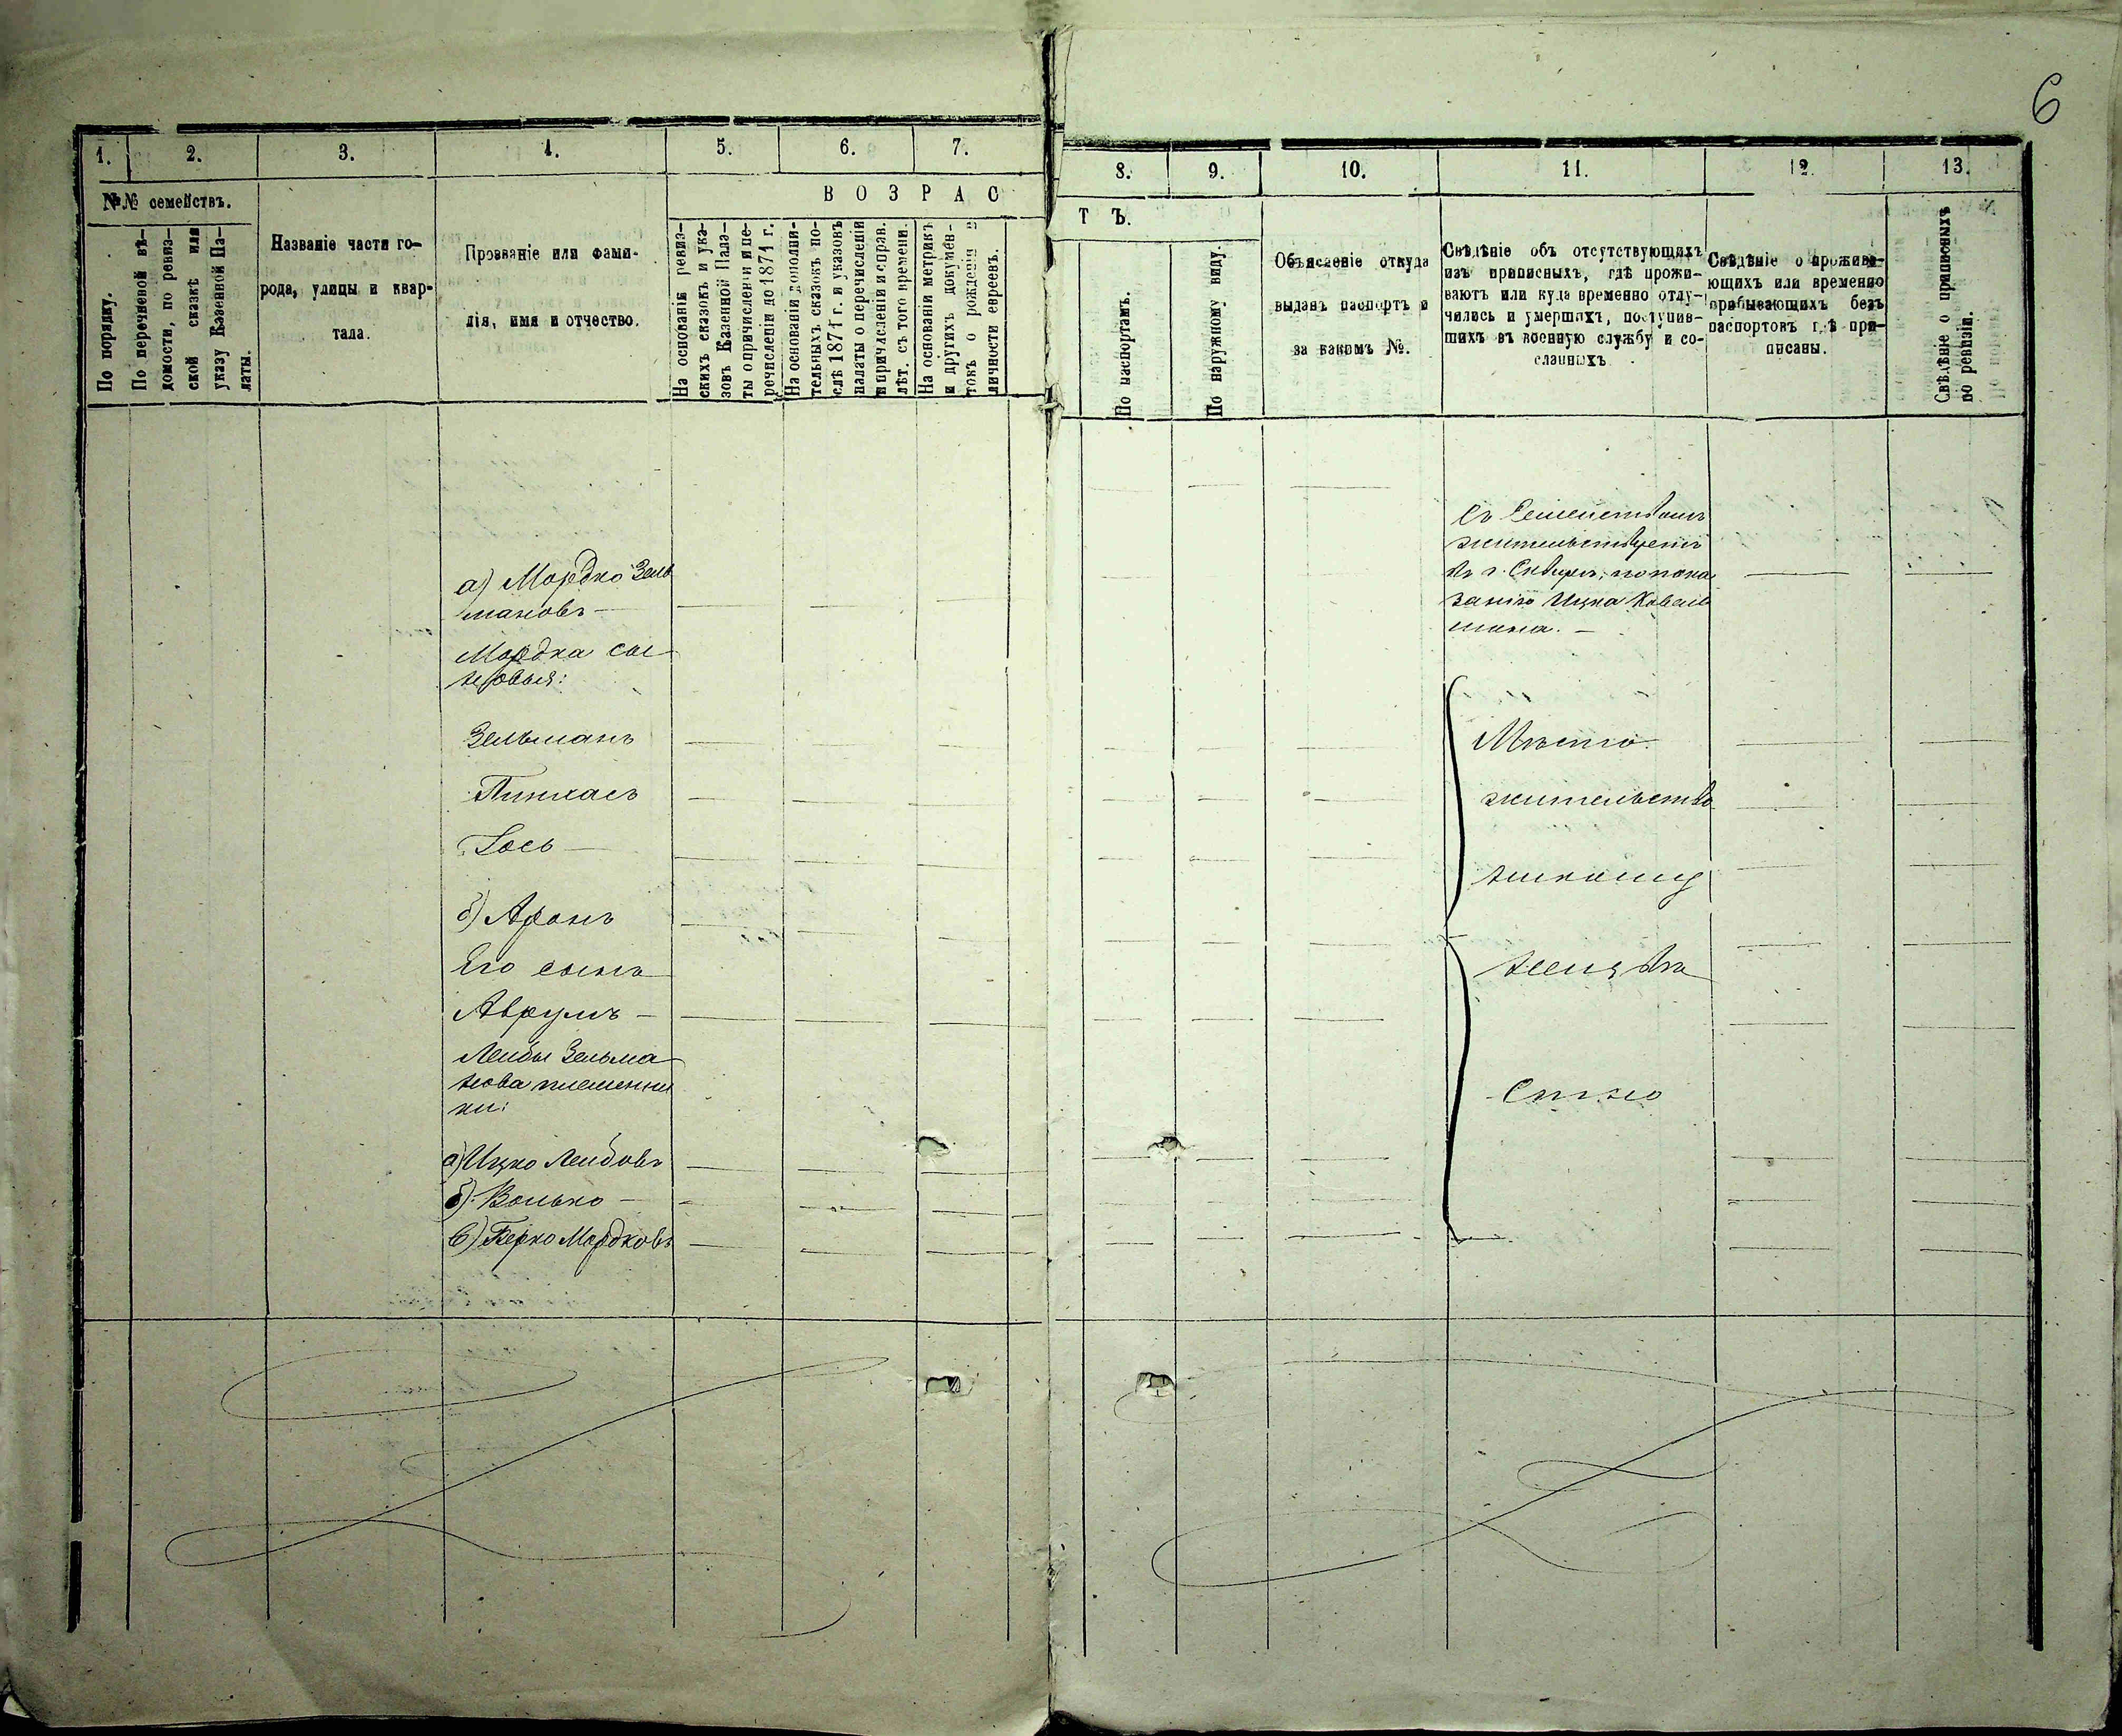 6
1. 2. 3. 4. 5. 6. 7. 8. 9. 10. 11. 12. 13.
№№ семействъ.
По порядку.
По перечневой вѣ-
домости, по ревиз-
ской сказкѣ или
указу Казенной Па-
латы.
Названіе части го-
рода, улицы и квар-
тала.
Прозваніе или фами-
лія, имя и отчество.
ВОЗРАС
ТЪ.
На основаніи ревиз-
скихъ сказокъ и ука-
зовъ Казенной Пала-
ты о причисленіи и пе-
речисленіи до 1871 г.
На основаніи дополни-
тельныхъ сказокъ по-
слѣ 1871 г. и указовъ
палаты о перечисленіи
и причисленіи и справ.
лѣт. съ того времени.
На основаніи метрикъ
и другихъ докумен-
товъ о рожденіи и
личности евреевъ.
По паспортамъ.
По наружному виду.
Объясненіе откуда
выданъ паспортъ и
за какимъ №.
Свѣдѣніе объ отсутствующихъ
изъ приписныхъ, гдѣ прожи-
ваютъ или куда временно отлу-
чились и умершихъ, поступив-
шихъ въ военную службу и со-
сланныхъ
Свѣдѣніе о прожива-
ющихъ или временно
прибывающихъ безъ
паспортовъ гдѣ при-
писаны.
Свѣдѣніе о приписныхъ
по ревизіи.
а) Мордко Зель
мановъ —
Мордка сы
новья:
Зельманъ
Пинхасъ
Іось —
б) Аронъ
Его сынъ
Аврумъ —
Лейбы Зельма
нова племянни
ки:
а) Ицко Лейбовъ
б) Волько —
в) Берко Мордковъ
Съ Семействомъ
жительствуетъ
въ г. Сквирѣ, по пока
занію Ицка Коваль
мана. —
Мѣсто
жительство
никому
неизвѣ
стно